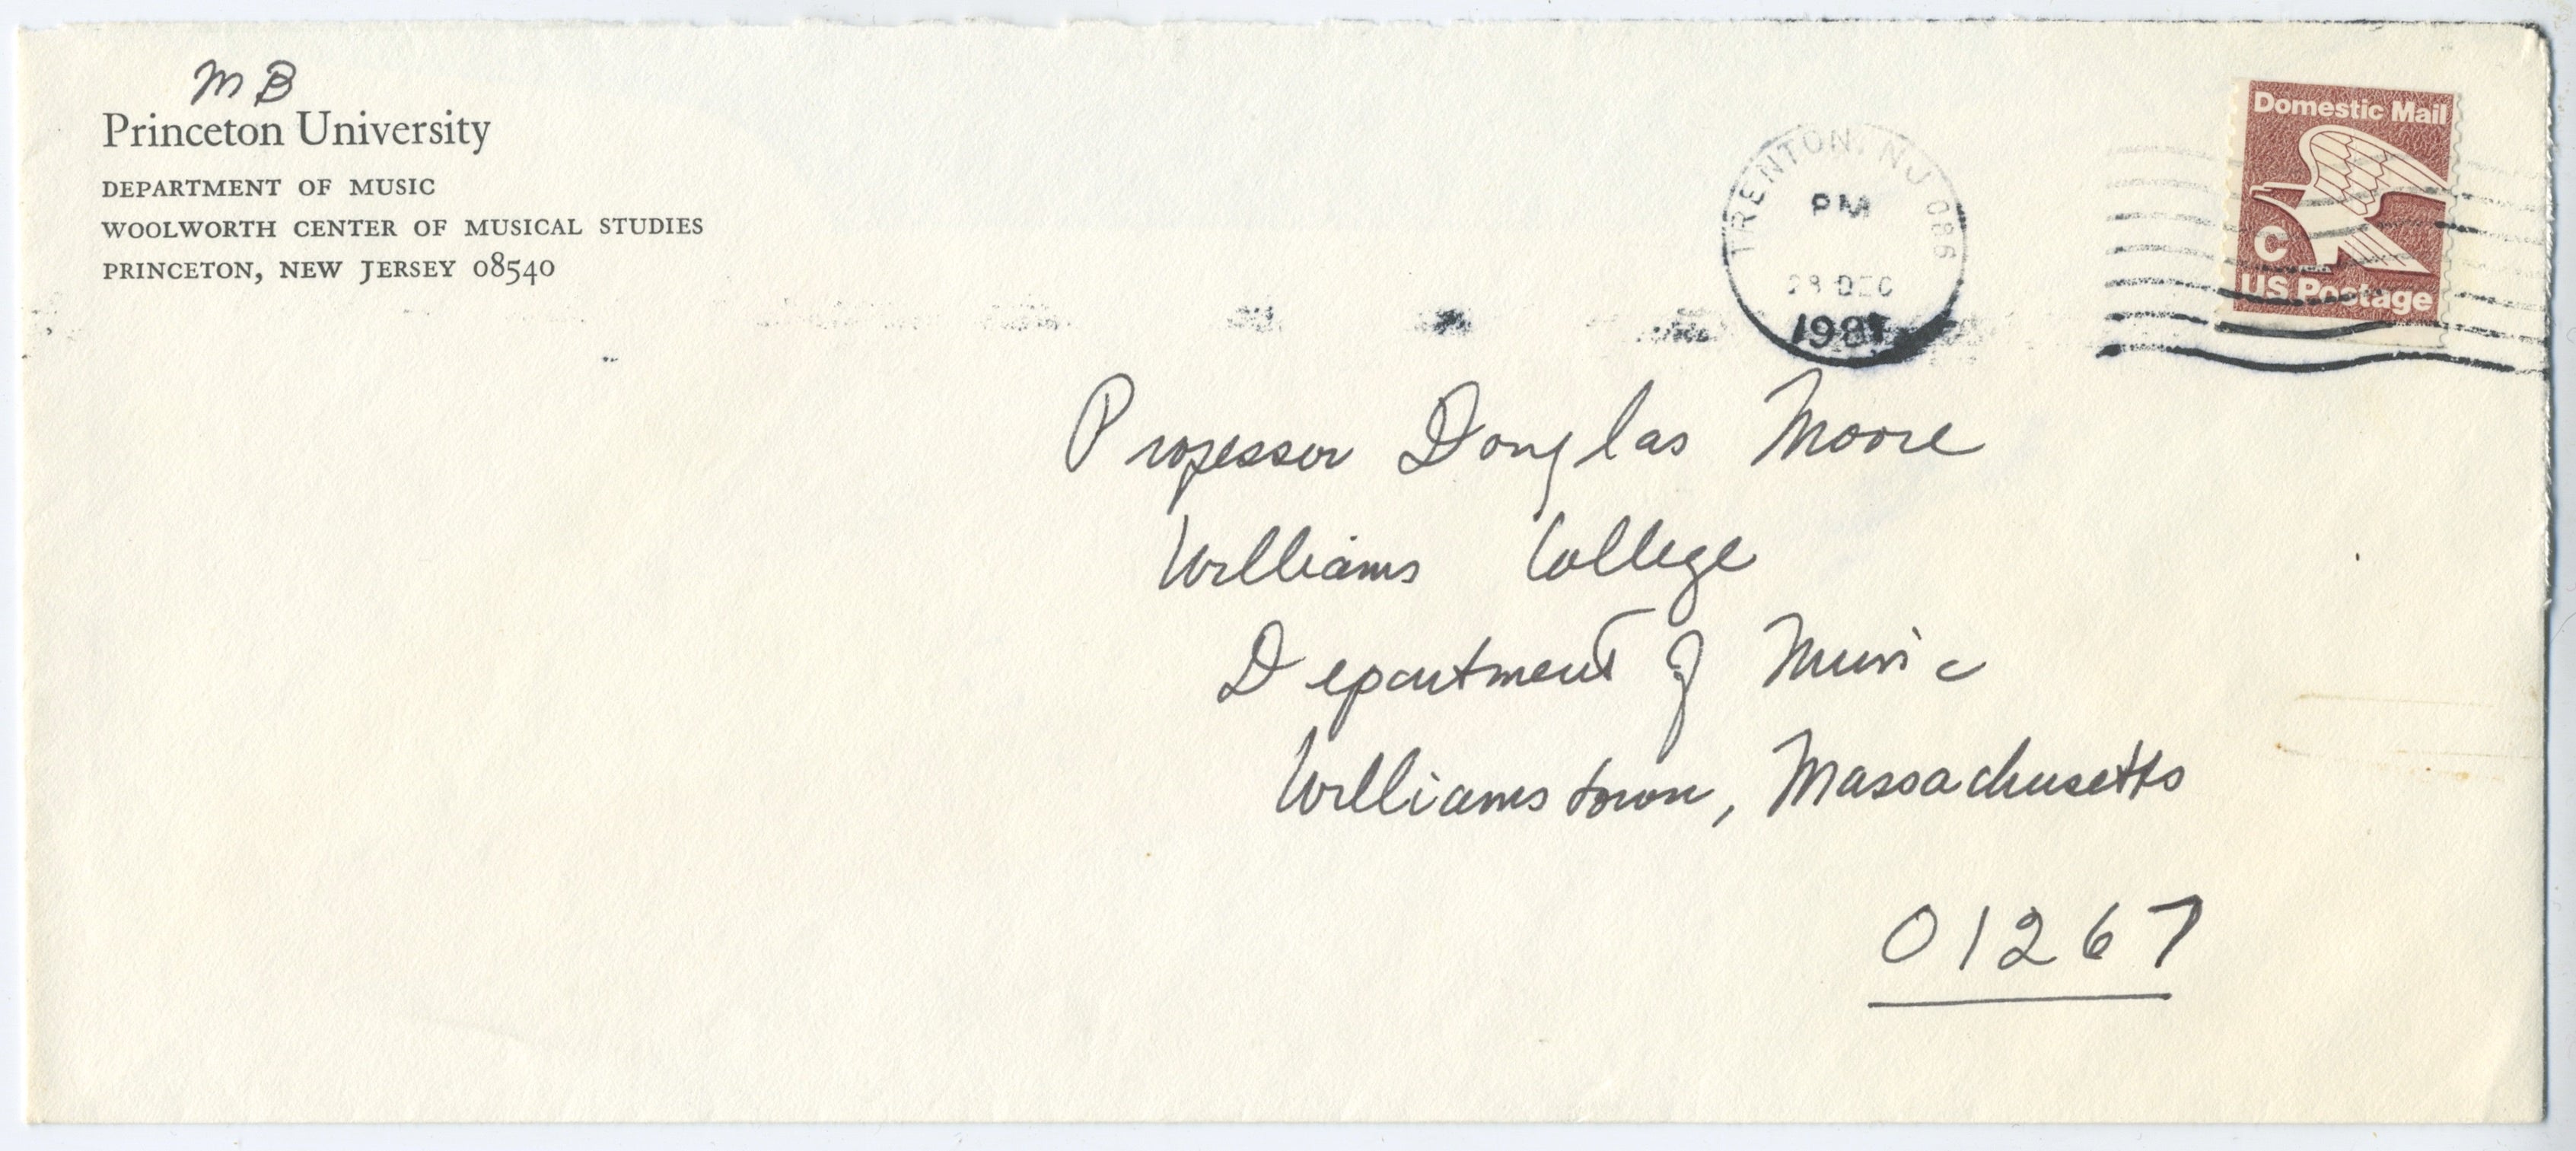 M B
Princeton University
DEPARTMENT OF MUSIC
WOOLWORTH CENTER OF MUSICAL STUDIES
PRINCETON, NEW JERSEY 08540
TRENTON, NJ 086
PM
28 DEC
1981
Domestic Mail
C
US Postage
Professor Douglas Moore
Williams College
Department of Music
Williamstown, Massachusetts
01267